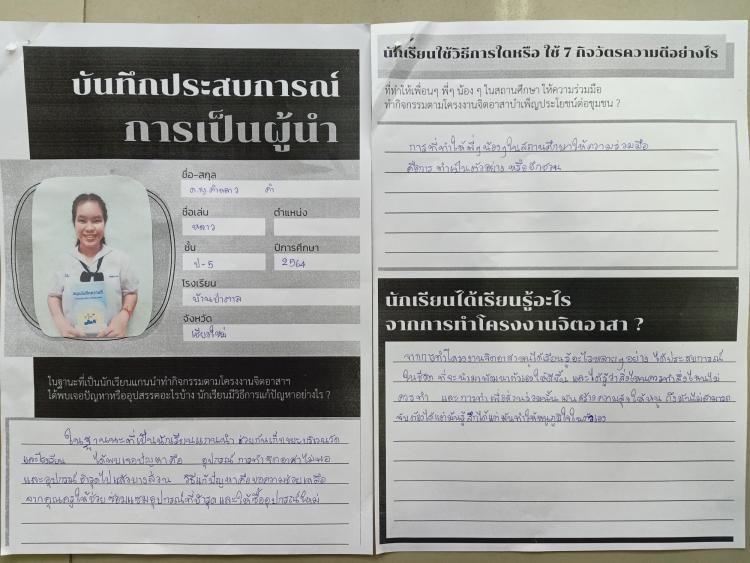 บันทึกประสบการณ์
การเป็นผู้นำ
ชื่อ-สกุล
ด.ญ.คำหลาว คำ
ชื่อเล่น
ตำแหน่ง
หลาว
ชั้น
ปีการศึกษา
ป-5
2564
โรงเรียน
บ้านป่าตาล
จังหวัด
เชียงใหม่
ในฐานะที่เป็นนักเรียนแกนนำทำกิจกรรมตามโครงงานจิตอาสาฯ
ได้พบเจอปัญหาหรืออุปสรรคอะไรบ้าง นักเรียนมีวิธีการแก้ปัญหาอย่างไร ?
ในฐานะที่เป็นนักเรียนแกนนำ ช่วยกันเก็บขยะบริเวณวัด
และโรงเรียน ได้พบเจอปัญหาคือ อุปกรณ์การทำจิตอาสาไม่พอ
และอุปกรณ์ชำรุดไปแล้วบางส่วน วิธีแก้ปัญหาคือขอความช่วยเหลือ
จากคุณครูให้ช่วยซ่อมแซมอุปกรณ์ที่ชำรุดและให้ซื้ออุปกรณ์ใหม่
นักเรียนใช้วิธีการใดหรือ ใช้ 7 กิจวัตรความดีอย่างไร
ที่ทำให้เพื่อนๆ พี่ๆ น้อง ๆ ในสถานศึกษา ให้ความร่วมมือ
ทำกิจกรรมตามโครงงานจิตอาสาบำเพ็ญประโยชน์ต่อชุมชน ?
การที่ทำให้พี่ๆน้องๆในสถานศึกษาให้ความร่วมมือ
คือการ ทำเป็นตัวอย่าง หรือชักชวน
นักเรียนได้เรียนรู้อะไร
จากการทำโครงงานจิตอาสา ?
จากการทำโครงงานจิตอาสาหนูได้เรียนรู้อะไรหลายๆอย่าง ได้ประสบการณ์
ในชีวิต ที่จะนำมาพัฒนาตัวเองให้ดีขึ้น และได้รู้ว่าสิ่งไหนควรทำสิ่งไหนไม่
ควรทำ และการทำเพื่อส่วนรวมนั้น มันสร้างความสุขให้หนู ถึงมันไม่สามารถ
จับต้องได้แต่มันรู้สึกได้และมันทำให้หนูภูมิใจในตัวเอง